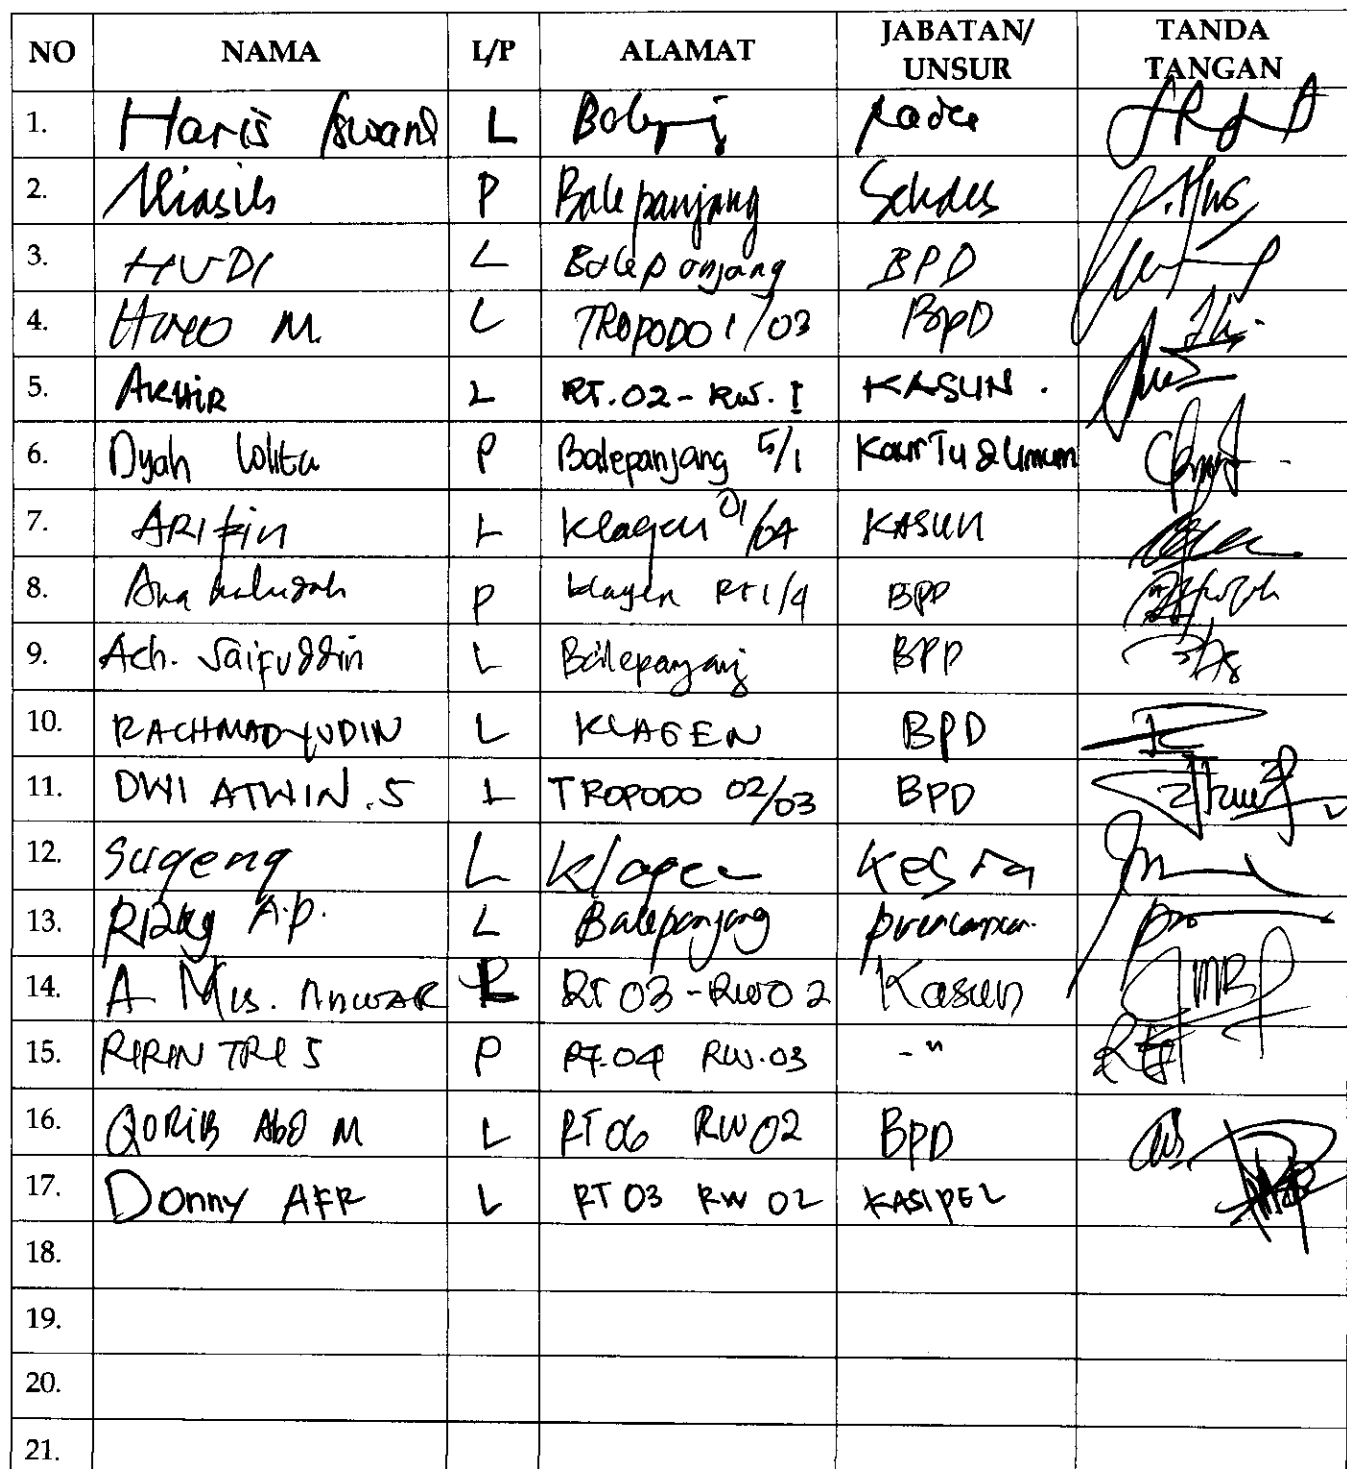 NO NAMA L/P ALAMAT JABATAN/ UNSUR TANDA TANGAN
1. Haris L
2. P Balepanjang Sekdes
3. HUDI L Balepanjang BPD
4. M. L TROPODO 1/03 BPD
5. AKHIR L RT.02-RW.I KASUN.
6. Dyah Lolita P Balepanjang 5/1 Kaur TU & Umum
7. ARIFIN L Klagen 01/04 KASUN
8. P Klagen RT1/4 BPD
9. Ach. Saifuddin L Balepanjang BPD
10. RACHMADYUDIN L KLAGEN BPD
11. DWI ATWIN.S L TROPODO 02/03 BPD
12. Sugeng L Klagen Kesra
13. Rizky A.P. L Balepanjang
14. A Mis. Anwar RT 03-RW02 Kasun
15. RIRIN TRI S P RT.04 RW.03 -"
16. QORIB Abd M L RT06 RW02 BPD
17. Donny AFR L RT 03 RW 02 KASIPEL
18.
19.
20.
21.